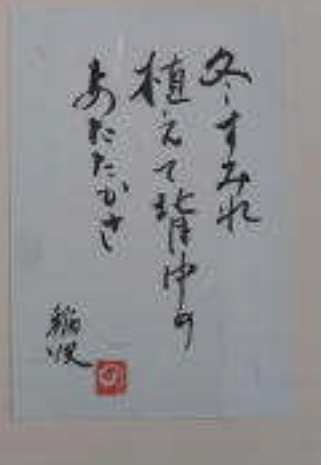 冬すみれ
植えて背中の
あたたかさ
稲波
の